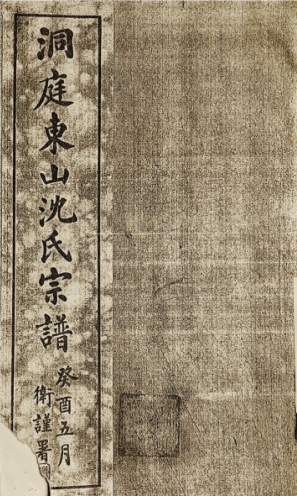 洞庭東山沈氏宗譜
癸酉五月
衛謹署